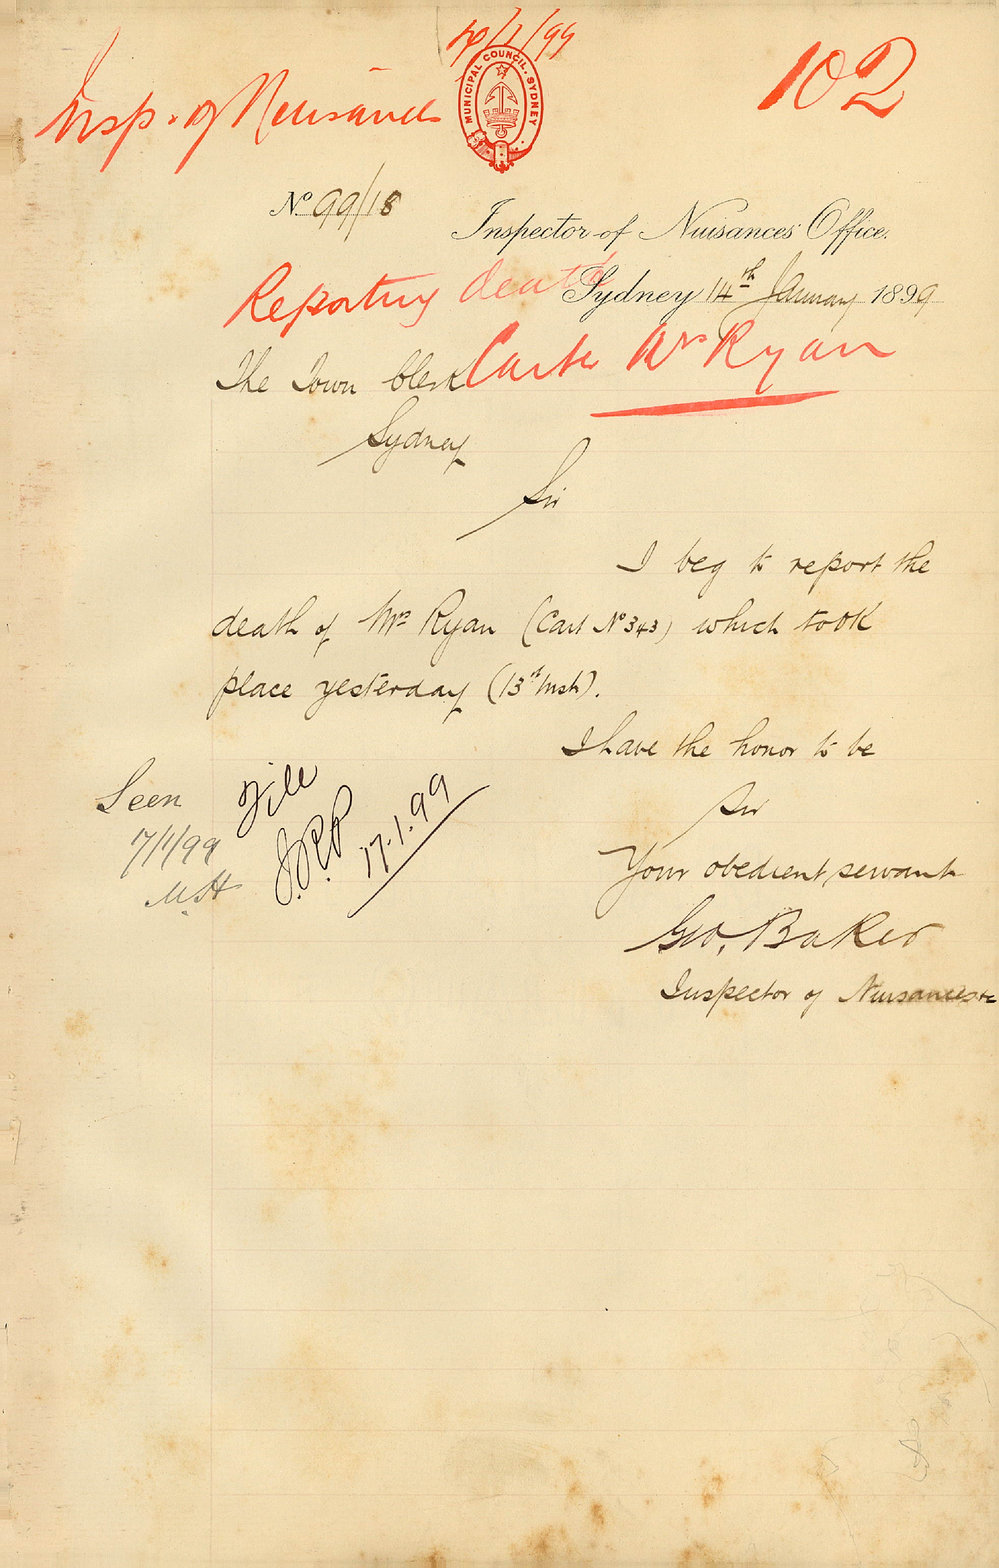 /1/99
102
Insp. of Nuisances
MUNICIPAL COUNCIL. SYDNEY
No 99/18
Inspector of Nuisances' Office.
Reporting death
Sydney 14th January 1899
The Town Clerk
Sydney
Sir
I beg to report the
death of Mr Ryan (Cart No 343) which took
place yesterday (13th Inst).
I have the honor to be
Sir
Your obedient servant
Geo. Baker
Inspector of Nuisances &c
Seen
17/1/99
File
17.1.99
Ryan